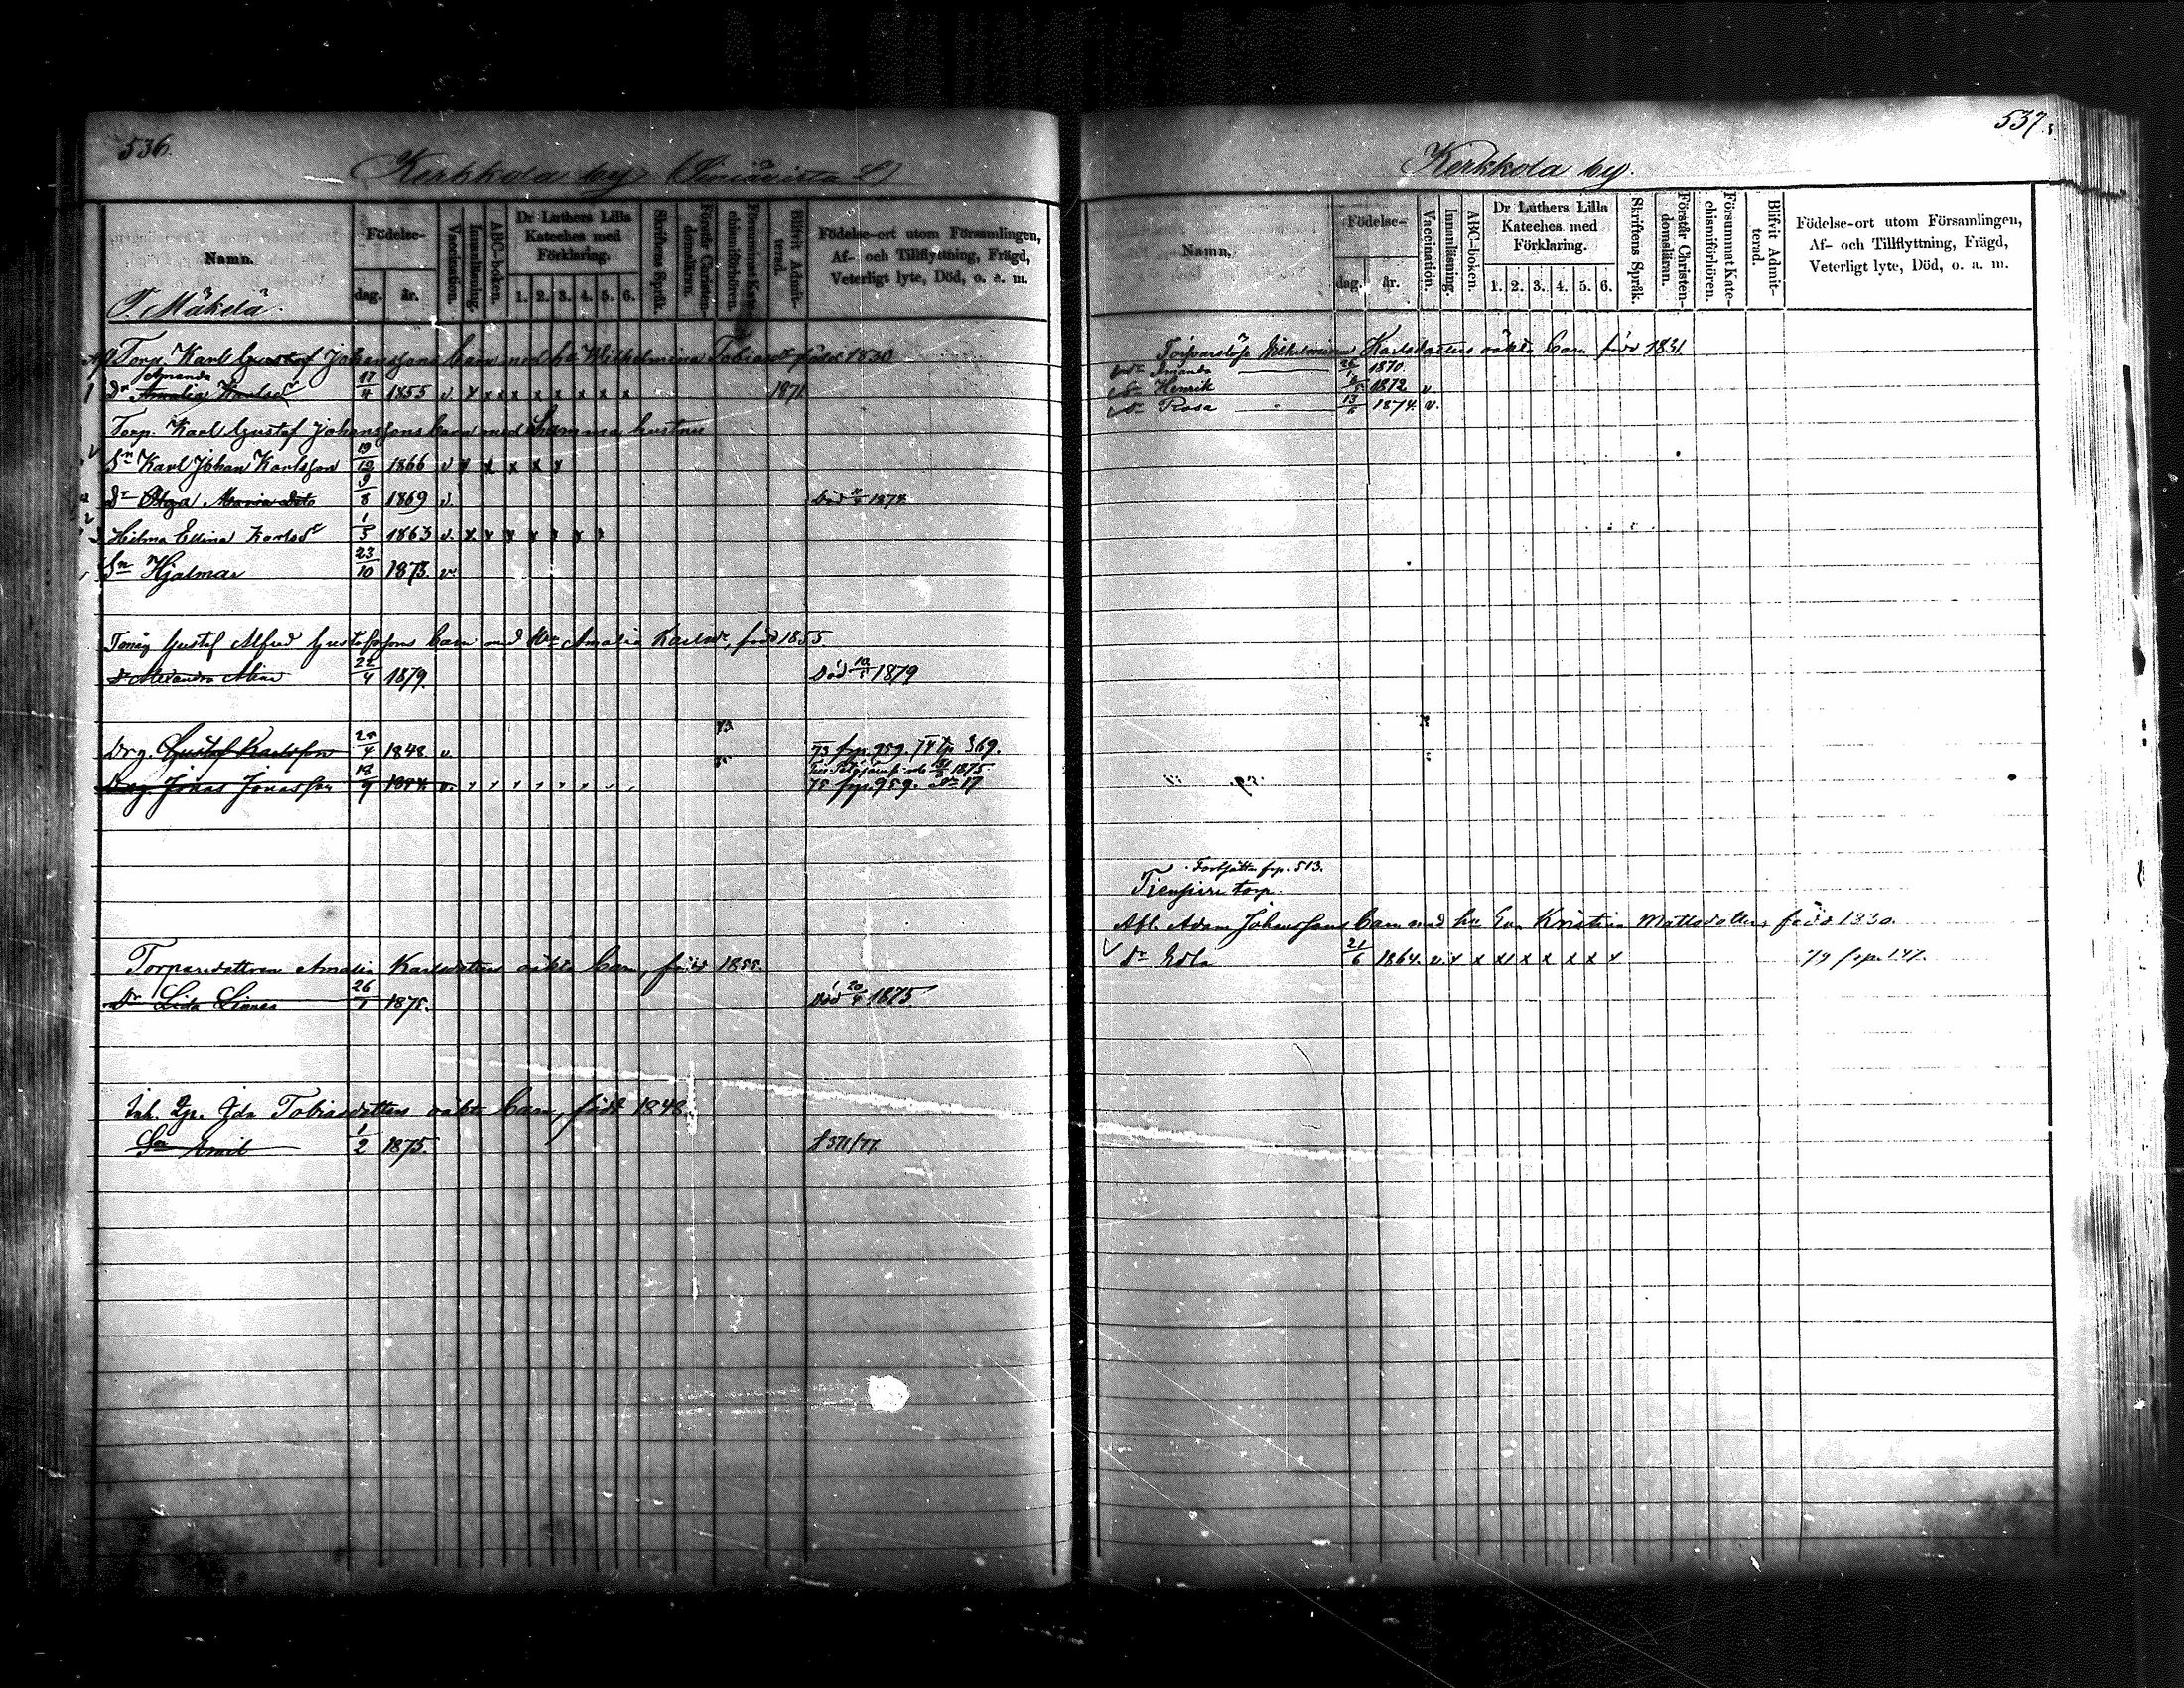 536.
Kerkkola by
Namn.
Födelse-
dag.
år.
Vaccination.
Innanläsning.
ABC-boken.
Dr Luthers Lilla Kateches med Förklaring.
1. 2. 3. 4. 5. 6.
Skriftens Språk.
Förstår Christendomsläran.
Försummat Katechismiförhören.
Blifvit Admitterad.
Födelse-ort utom Församlingen, Af- och Tillflyttning, Frägd, Veterligt lyte, Död, o. a. m.
T. Mäkelä.
Torp. Karl Gustaf Johanssons barn med h:u Wilhelmina Tobiasdr född 1830
Amanda
Dr Amalia Karlsdr 17/4 1855 v. x x x x x x x x 1871
Torp. Karl Gustaf Johanssons barn med Samma hustru
Sn Karl Johan Karlsson 19/12 1866 v x x x x x
Dr Olga Maria dito 9/8 1869 v. Död 1874
Hilma Elina Karlsdr 1/5 1863 v. x x x x x x x
Sn Hjalmar 23/10 1873. v.
Gustaf Alfred Gustafssons barn med Amalia Karlsdr, född 1855.
Dr Alexandra Alina 22/4 1879. Död 1879
73
Drg. Gustaf Karlsson 1848. v. 73 frp. 959. 74 tp 369.
1875
Drg. Jonas Jonasson 18/9 v. 75 frp. 959. No 17
Torparedottren Amalia Karlsdotters oäkta barn, född 1855.
Dr Lida Linnea 26/1 1875. Död 20/4 1875
Inh. Qp. Ida Tobiasdotters oäkta barn, född 1848.
Sn Emil 1/2 1875.
537.
Kerkkola by.
Namn.
Födelse-
dag.
år.
Vaccination.
Innanläsning.
ABC-boken.
Dr Luthers Lilla Kateches med Förklaring.
1. 2. 3. 4. 5. 6.
Skriftens Språk.
Förstår Christendomsläran.
Försummat Katechismiförhören.
Blifvit Admitterad.
Födelse-ort utom Församlingen, Af- och Tillflyttning, Frägd, Veterligt lyte, Död, o. a. m.
Wilhelmina Karlsdotters oäkta barn född 1831.
Amanda 1870
Sn Henrik 1872 v
Dr Rosa 13/6 1874. v.
Fortsättn frp. 513.
torp.
Afl. Adam Johanssons barn med h:u Eva Kristina Mattsdotter, född 1830.
Dr Edla 21/6 1864. v. x x x x x x x x